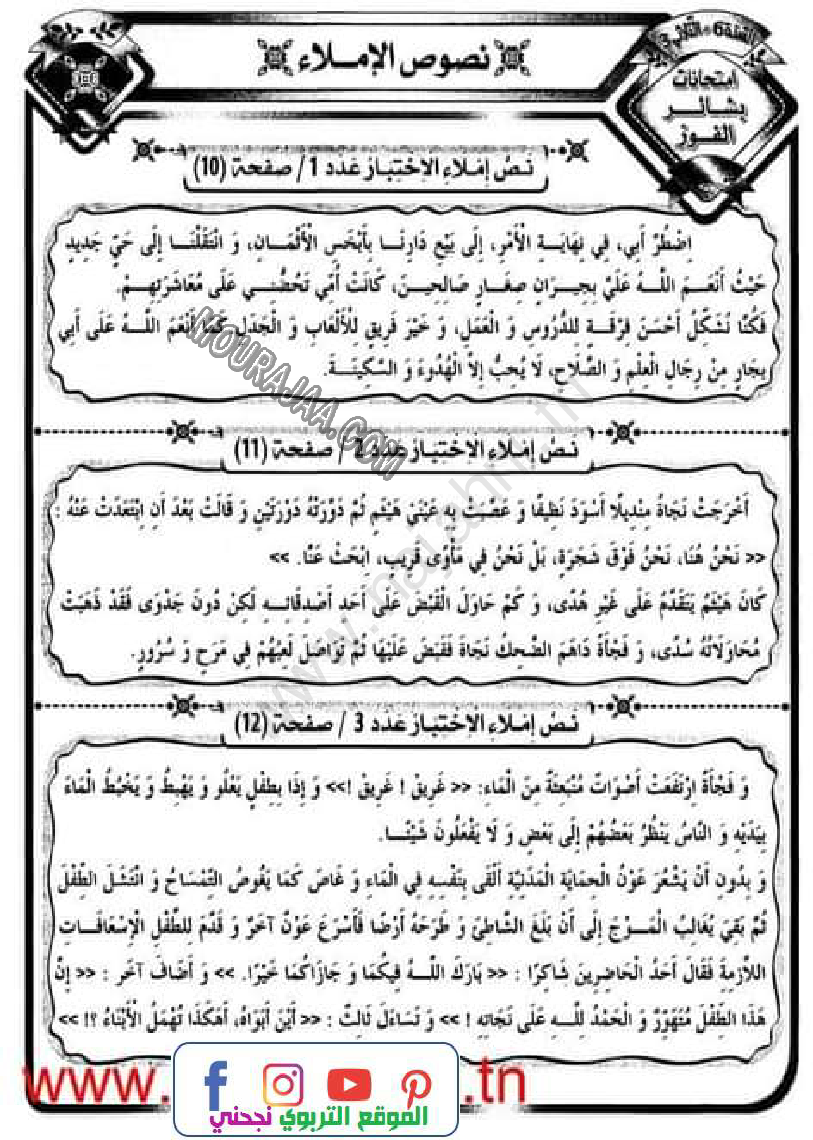 نصوص الإملاء
السنة 6 - الثلاثي 3
امتحانات
بشائر
الفوز
نَصُّ إِمْلَاءِ الِاخْتِبَارْ عَدَد 1 / صَفْحَة (10)
اِضْطُرَّ أَبِي، فِي نِهَايَةِ الْأَمْرِ، إِلَى بَيْعِ دَارِنَا بِأَبْخَسِ الْأَثْمَانِ، وَ انْتَقَلْنَا إِلَى حَيٍّ جَدِيدٍ
حَيْثُ أَنْعَمَ اللَّهُ عَلَيَّ بِجِيرَانٍ صِغَارٍ صَالِحِينَ، كَانَتْ أُمِّي تَحُضُّنِي عَلَى مُعَاشَرَتِهِمْ.
فَكُنَّا نُشَكِّلُ أَحْسَنَ فِرْقَةٍ لِلدُّرُوسِ وَ الْعَمَلِ، وَ خَيْرَ فَرِيقٍ لِلْأَلْعَابِ وَ الْجَدَلِ كَمَا أَنْعَمَ اللَّهُ عَلَى أَبِي
بِجَارٍ مِنْ رِجَالِ الْعِلْمِ وَ الصَّلَاحِ، لَا يُحِبُّ إِلاَّ الْهُدُوءَ وَ السَّكِينَةَ.
MOURAJAA.COM
نَصُّ إِمْلَاءِ الِاخْتِبَارْ عَدَد 2 / صَفْحَة (11)
أَخْرَجَتْ نَجَاةُ مِنْدِيلًا أَسْوَدَ نَظِيفًا وَ عَصَّبَتْ بِهِ عَيْنَيْ هَيْثَمٍ ثُمَّ دَوَّرَتْهُ دَوْرَتَيْنِ وَ قَالَتْ بَعْدَ أَنِ ابْتَعَدَتْ عَنْهُ :
<< نَحْنُ هُنَا، نَحْنُ فَوْقَ شَجَرَةٍ، بَلْ نَحْنُ فِي مَأْوًى قَرِيبٍ، ابْحَثْ عَنَّا. >>
كَانَ هَيْثَمُ يَتَقَدَّمُ عَلَى غَيْرِ هُدًى، وَ كَمْ حَاوَلَ الْقَبْضَ عَلَى أَحَدِ أَصْدِقَائِهِ لَكِنْ دُونَ جَدْوَى فَقَدْ ذَهَبَتْ
مُحَاوَلَاتُهُ سُدًى، وَ فَجْأَةً دَاهَمَ الضَّحِكُ نَجَاةَ فَقَبَضَ عَلَيْهَا ثُمَّ تَوَاصَلَ لَعِبُهُمْ فِي مَرَحٍ وَ سُرُورٍ.
نَصُّ إِمْلَاءِ الِاخْتِبَارْ عَدَد 3 / صَفْحَة (12)
وَ فَجْأَةً اِرْتَفَعَتْ أَصْوَاتٌ مُنْبَعِثَةٌ مِنَ الْمَاءِ: << غَرِيقٌ ! غَرِيقٌ !>> وَ إِذَا بِطِفْلٍ يَعْلُو وَ يَهْبِطُ وَ يَخْبُطُ الْمَاءَ
بِيَدَيْهِ وَ النَّاسُ يَنْظُرُ بَعْضُهُمْ إِلَى بَعْضٍ وَ لَا يَفْعَلُونَ شَيْئًا.
وَ بِدُونِ أَنْ يَشْعُرَ عَوْنُ الْحِمَايَةِ الْمَدَنِيَّةِ أَلْقَى بِنَفْسِهِ فِي الْمَاءِ وَ غَاصَ كَمَا يَغُوصُ التِّمْسَاحُ وَ انْتَشَلَ الطِّفْلَ
ثُمَّ بَقِيَ يُغَالِبُ الْمَوْجَ إِلَى أَنْ بَلَغَ الشَّاطِئَ وَ طَرَحَهُ أَرْضًا فَأَسْرَعَ عَوْنٌ آخَرُ وَ قَدَّمَ لِلطِّفْلِ الْإِسْعَافَاتِ
اللاَّزِمَةِ فَقَالَ أَحَدُ الْحَاضِرِينَ شَاكِرًا : << بَارَكَ اللَّهُ فِيكُمَا وَ جَازَاكُمَا خَيْرًا. >> وَ أَضَافَ آخَرُ : << إِنَّ
هَذَا الطِّفْلَ مُتَهَوِّرٌ وَ الْحَمْدُ لِلَّهِ عَلَى نَجَاتِهِ ! >> وَ تَسَاءَلَ ثَالِثٌ : << أَيْنَ أَبَوَاهُ، أَهَكَذَا تُهْمَلُ الْأَبْنَاءُ ؟! >>
www. .tn
الموقع التربوي نجحني